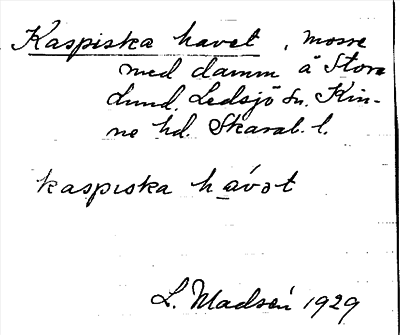 Kaspiska havet, mosse
med damm å Stora
Lund. Ledsjö sn. Kin-
ne hd. Skarab. l.
kaspıska hávat
L. Madsén 1929